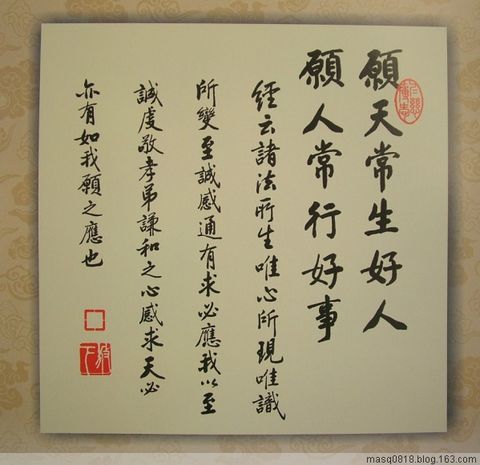 願天常生好人
願人常行好事
經云諸法所生唯心所現唯識
所變至誠感通有求必應我以至
誠虔敬孝弟謙和之心感求天必
亦有如我願之應也
masq0818.blog.163.com